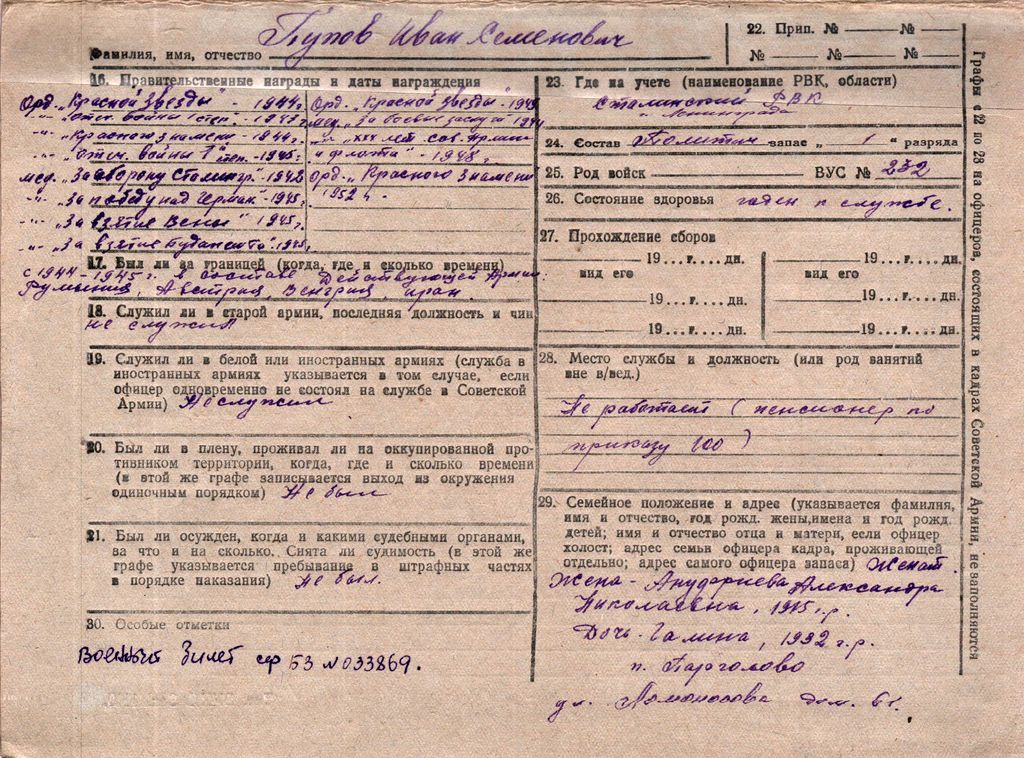 Фамилия, имя, отчество Пупов Иван Семенович
16. Правительственные награды и даты награждения
Орд. „Красной Звезды" - 1944г.
-"- Отеч. войны 1 степ. -
-"- „Красного знамени - 1944г.
-"- „Отеч. войны 1" степ. - 1945г.
мед. „За оборону Сталингр." - 1942
-"- „За победу над Герман" - 1945г.
-"- „За взятие Вены" 1945г.
-"- „За взятие Будапешта". 1945г.
Орд. „Красной Звезды" - 1945
мед. „За боевые заслуги 1944
-"- „XXX лет Сов. Армии
и флота" - 1948г.
Орд. „Красного Знамени
1952 г.
17. Был ли за границей (когда, где и сколько времени)
с 1944-1945 г. в составе Действующей Армии.
Румыния, Австрия, Венгрия, Иран.
18. Служил ли в старой армии, последняя должность и чин
не служил
19. Служил ли в белой или иностранных армиях (служба в
иностранных армиях указывается в том случае, если
офицер одновременно не состоял на службе в Советской
Армии) Не служил
20. Был ли в плену, проживал ли на оккупированной про-
тивником территории, когда, где и сколько времени
(в этой же графе записывается выход из окружения
одиночным порядком) Не был
21. Был ли осужден, когда и какими судебными органами,
за что и на сколько. Снята ли судимость (в этой же
графе указывается пребывание в штрафных частях
в порядке наказания) Не был.
30. Особые отметки
Военный билет сер БЗ №033869.
22. Прип. № №
№ № №
23. Где на учете (наименование РВК, области)
Сталинский РВК
г. Ленинграда
24. Состав Политич запас „ 1 " разряда
25. Род войск ВУС № 232
26. Состояние здоровья годен к службе.
27. Прохождение сборов
19...г....дн. 19...г....дн.
вид его вид его
19...г....дн. 19...г....дн.
19...г....дн. 19...г....дн.
28. Место службы и должность (или род занятий
вне в/вед.)
Не работает (пенсионер по
приказу 100)
29. Семейное положение и адрес (указывается фамилия,
имя и отчество, год рожд. жены, имена и год рожд.
детей; имя и отчество отца и матери, если офицер
холост; адрес семьи офицера кадра, проживающей
отдельно; адрес самого офицера запаса) Женат.
Жена - Ануфриева Александра
Николаевна, 1915 г.р.
Дочь - Галина, 1932 г.р.
п. Парголово
ул. Ломоносова дом. 61.
Графы с 22 по 28 на офицеров, состоящих в кадрах Советской Армии, не заполняются